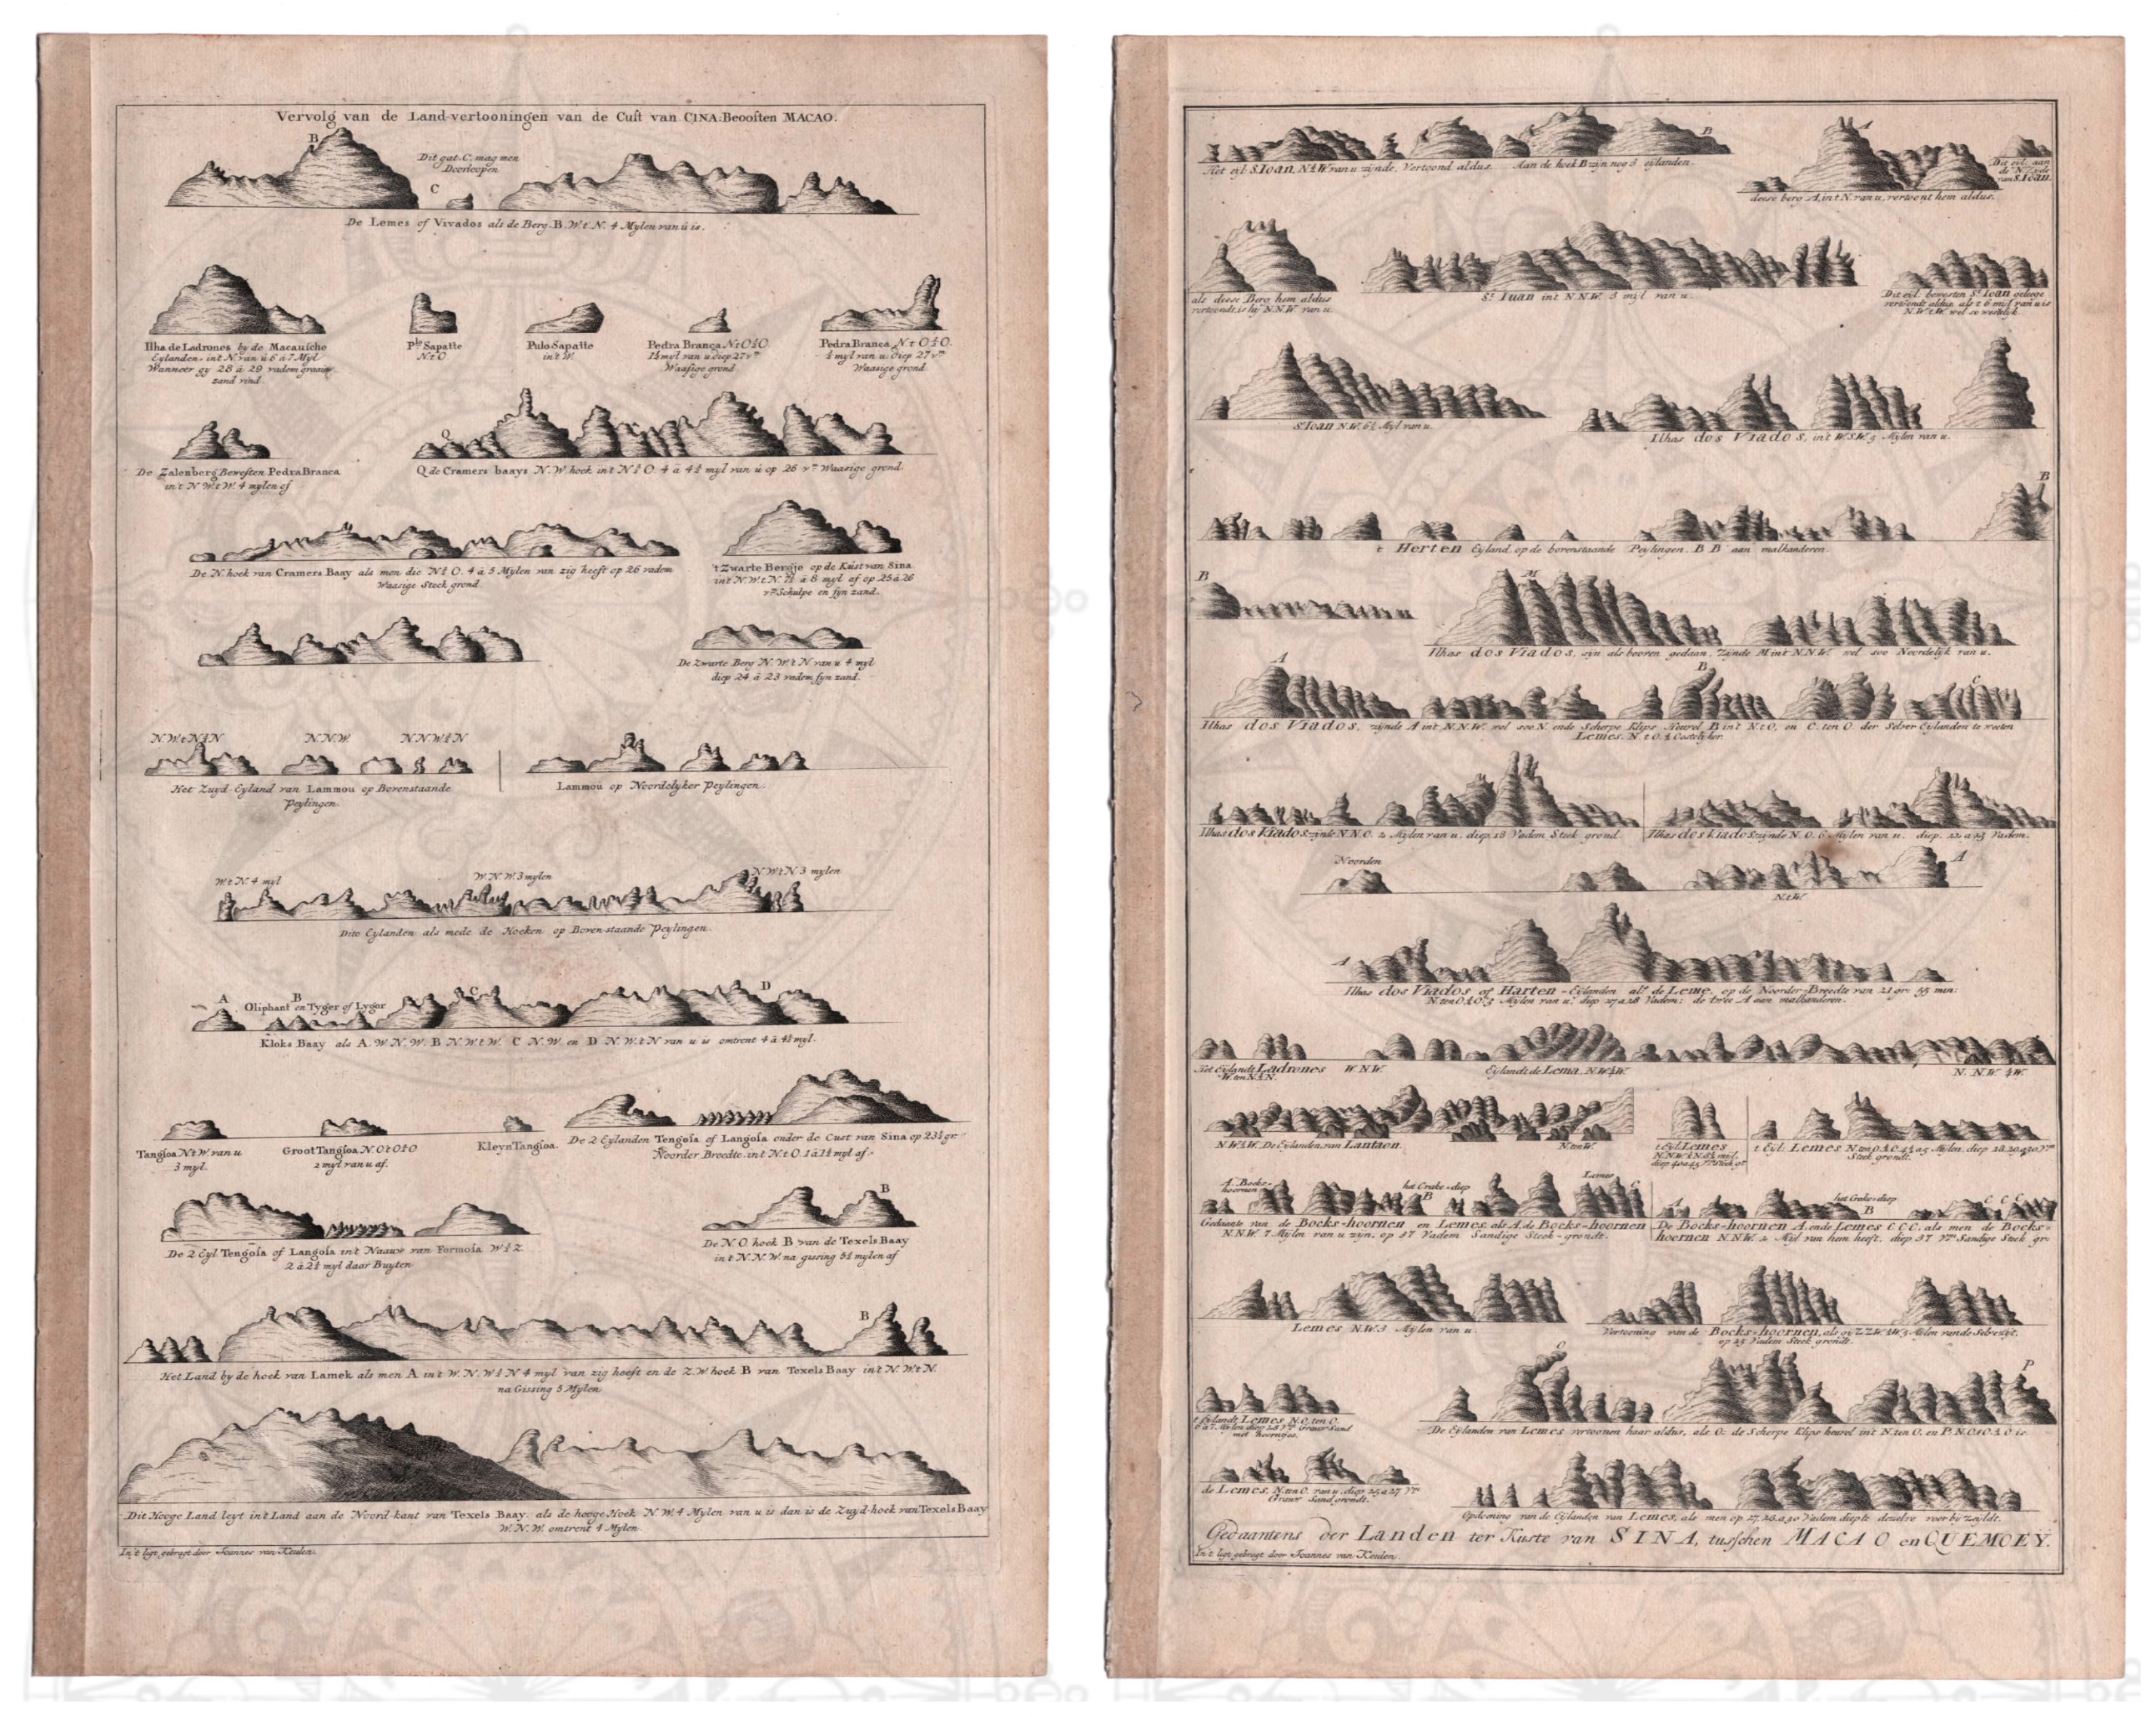 Vervolg van de Land-vertooningen van de Cust van CINA. Beoosten MACAO.
B
Dit gat C. mag men
Doorloopen
C
De Lemes of Vivados als de Berg B. W. t. N. 4 Mylen van ú is.
Ilha de Ladrones by de Macausche
Eylanden. in t N. van ú 6 á 7 Myl
Wanneer gy 28 á 29 vadem graauw
zand vind.
Plo Sapatte
N. t O
Pulo Sapatto
in t W.
Pedra Branca N t O ½ O.
1½ myl van u diep 27 vm
Waasige grond
Pedra Branca N. t O ½ O.
½ myl van u. diep 27 vm
Waasige grond
De Zalenberg Bewesten Pedra Branca
in t N W t W. 4 mylen of
Q
Q de Cramers baays N. W hoek in t N ½ O. 4 á 4½ myl van ú op 26 vm Waasige grond
De N. hoek van Cramers Baay als men die N ½ O. 4 á 5 Mylen van zig heeft op 26 vadem
Waasige Steck grond.
't Zwarte Bergje op de Kust van Sina
in t N. W t N. 7½ á 8 myl af op 25 á 26
vm Schulpe en fyn zand.
De Zwarte Berg N. W. t N van ú 4 myl
diep 24 á 23 vadem fyn zand.
N. W. t N ½ N
N. N. W.
N. N W ½ N
Het Zuyd Eyland van Lammou op Bovenstaande
Peylingen.
Lammou op Noordelyker Peylingen.
W t N. 4 myl
W. N W. 3 mylen
N W t N 3 mylen
Dito Eylanden als mede de Hoeken op Boven staande Peylingen.
A
B
Oliphant en Tyger of Lyger
C
D
Kloks Baay als A. W N. W. B N. W t W. C N. W. en D N. W. t N van u is omtrent 4 á 4½ myl.
Tangosa N t W. van u
3 myl.
Groot Tangsoa N. O t O ½ O
2 myl van u af.
Kleyn Tangsoa.
De 2 Eylanden Tengosa of Langosa onder de Cust van Sina op 23½ gr.
Noorder Breedte. in t N. t O. 1 á 1½ myl af.
De 2 Eyl Tengosa of Langosa in t Naauw van Formosa W ½ Z.
2 á 2½ myl daar Buyten
B
De N. O. hoek B van de Texels Baay
in t N. N. W. na gissing 5½ mylen af
B
Het Land by de hoek van Lamek als men A in t W. N. W ½ N 4 myl van zig heeft en de Z. W hoek B van Texels Baay in t N. W t N.
na Gissing 5 Mylen
Dit Hooge Land leyt in t Land aan de Noord-kant van Texels Baay. als de hooge Hoek N W. 4 Mylen van u is dan is de Zuyd-hoek van Texels Baay
W. N. W. omtrent 4 Mylen
In't ligt gebragt door Joannes van Keulen.
B
Het eyl: S. Ioan, N ½ W van u zijnde, Vertoond aldus. Aan de hoek B zijn nog 3 eylanden.
A
deese berg A, in t N. van u, vertoont hem aldus.
Dit eyl: aan
de N. Zyde
van S. Ioan.
als deese Berg hem aldus
vertoondt, is hy N. N. W van u.
St. Iuan in t N. N. W. 5 myl van u.
Dit eyl: bewesten St. Ioan gelege
vertoondt aldus, als t 6 myl van u is
N. W. t W. wel so westelyk
St. Ioan N. W. 6½ Myl van u.
Ilhas dos Viados, in t W. S. W. 5 Mylen van u.
B
t Herten Eyland op de bovenstaande Peylingen. B B aan malkanderen.
B
M
Ilhas dos Viados, syn als booven gedaan, Zijnde M in t N. N. W. wel soo Noordelijk van u.
A
B
C
Ilhas dos Viados, zijnde A in t N. N. W. wel soo N. ende Scherpe Klips Heuvel B in t N. t O, en C. ten O. der Selver Eylanden te weeten
Lemes. N. t O. ½ Oostelyker.
Ilhas dos Viados zijnde N. N. O. 2 Mylen van u. diep 18 Vadem Steek grond.
Ilhas dos Viados zijnde N. O. 6 Mylen van u. diep. 22 a 23 Vadem.
Noorden
A
N. t W
A
Ilhas dos Viados of Harten-Eylanden als de Leme, op de Noorder-Breedte van 21 gr: 55 min:
N. ten O ½ O. 5 Mylen van u. diep 27 a 28 Vadem: de twee A aan malkanderen.
Het Eylandt Ladrones
W. ten N ½ N.
W. N. W.
Eylandt de Lema N. W ½ W.
N. N. W. ½ W.
N. W ½ W. De Eylanden van Lantaon
N. ten W.
t Eyl: Lemes
t Eyl: Lemes N. ten O ½ O. 4½ a 5 Mylen. diep 28, 29 a 30 Vm
Steek grondt.
A Bocks-
hoornen
het Crake-diep
B
Lemes
C
Gedaante van de Bocks-hoornen en Lemes, als A. de Bocks-hoornen
N. N. W. 7 Mylen van u zyn, op 37 Vadem Sandige Steek-grondt.
A
het Crake-diep
B
C C C
De Bocks-hoornen A. ende Lemes C. C. C. als men de Bocks=
hoornen N. N. W. 2 Myl van hem heeft. diep 37 Vm Sandige Steek gr:
Lemes N. W. 3 Mylen van u.
Vertooning van de Bocks-hoornen, als gy Z. Z. W. ½ W. 3 Mylen van de Selve zyt.
op 25 Vadem Steek grondt.
t Eylandt Lemes N. O. ten O.
6 a 7 Mylen diep 28 Vm Graeuw Sand
met hoorntjes.
C
P
De Eylanden van Lemes vertoonen haar aldus, als O: de Scherpe Klips heuvel in t N. ten O. en P. N. O. t O ½ O is.
de Lemes. N. ten O. van u. diep 25 a 27 Vm
Graeuw Sand grondt.
Opdoening van de Eylanden van Lemes, als men op 27, 28, a 30 Vadem diepte dezelve voor by Zeyldt.
Gedaantens der Landen ter Kuste van SINA, tusschen MACAO en QUEMOEY.
In't ligt gebragt door Joannes van Keulen.